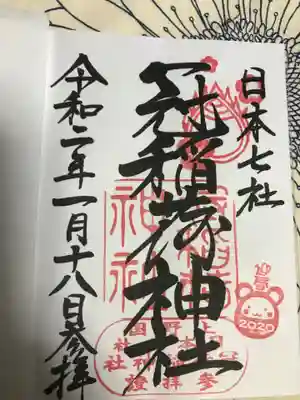 日本七社
冠稲荷神社
令和二年一月十八日参拝
迎春
2020